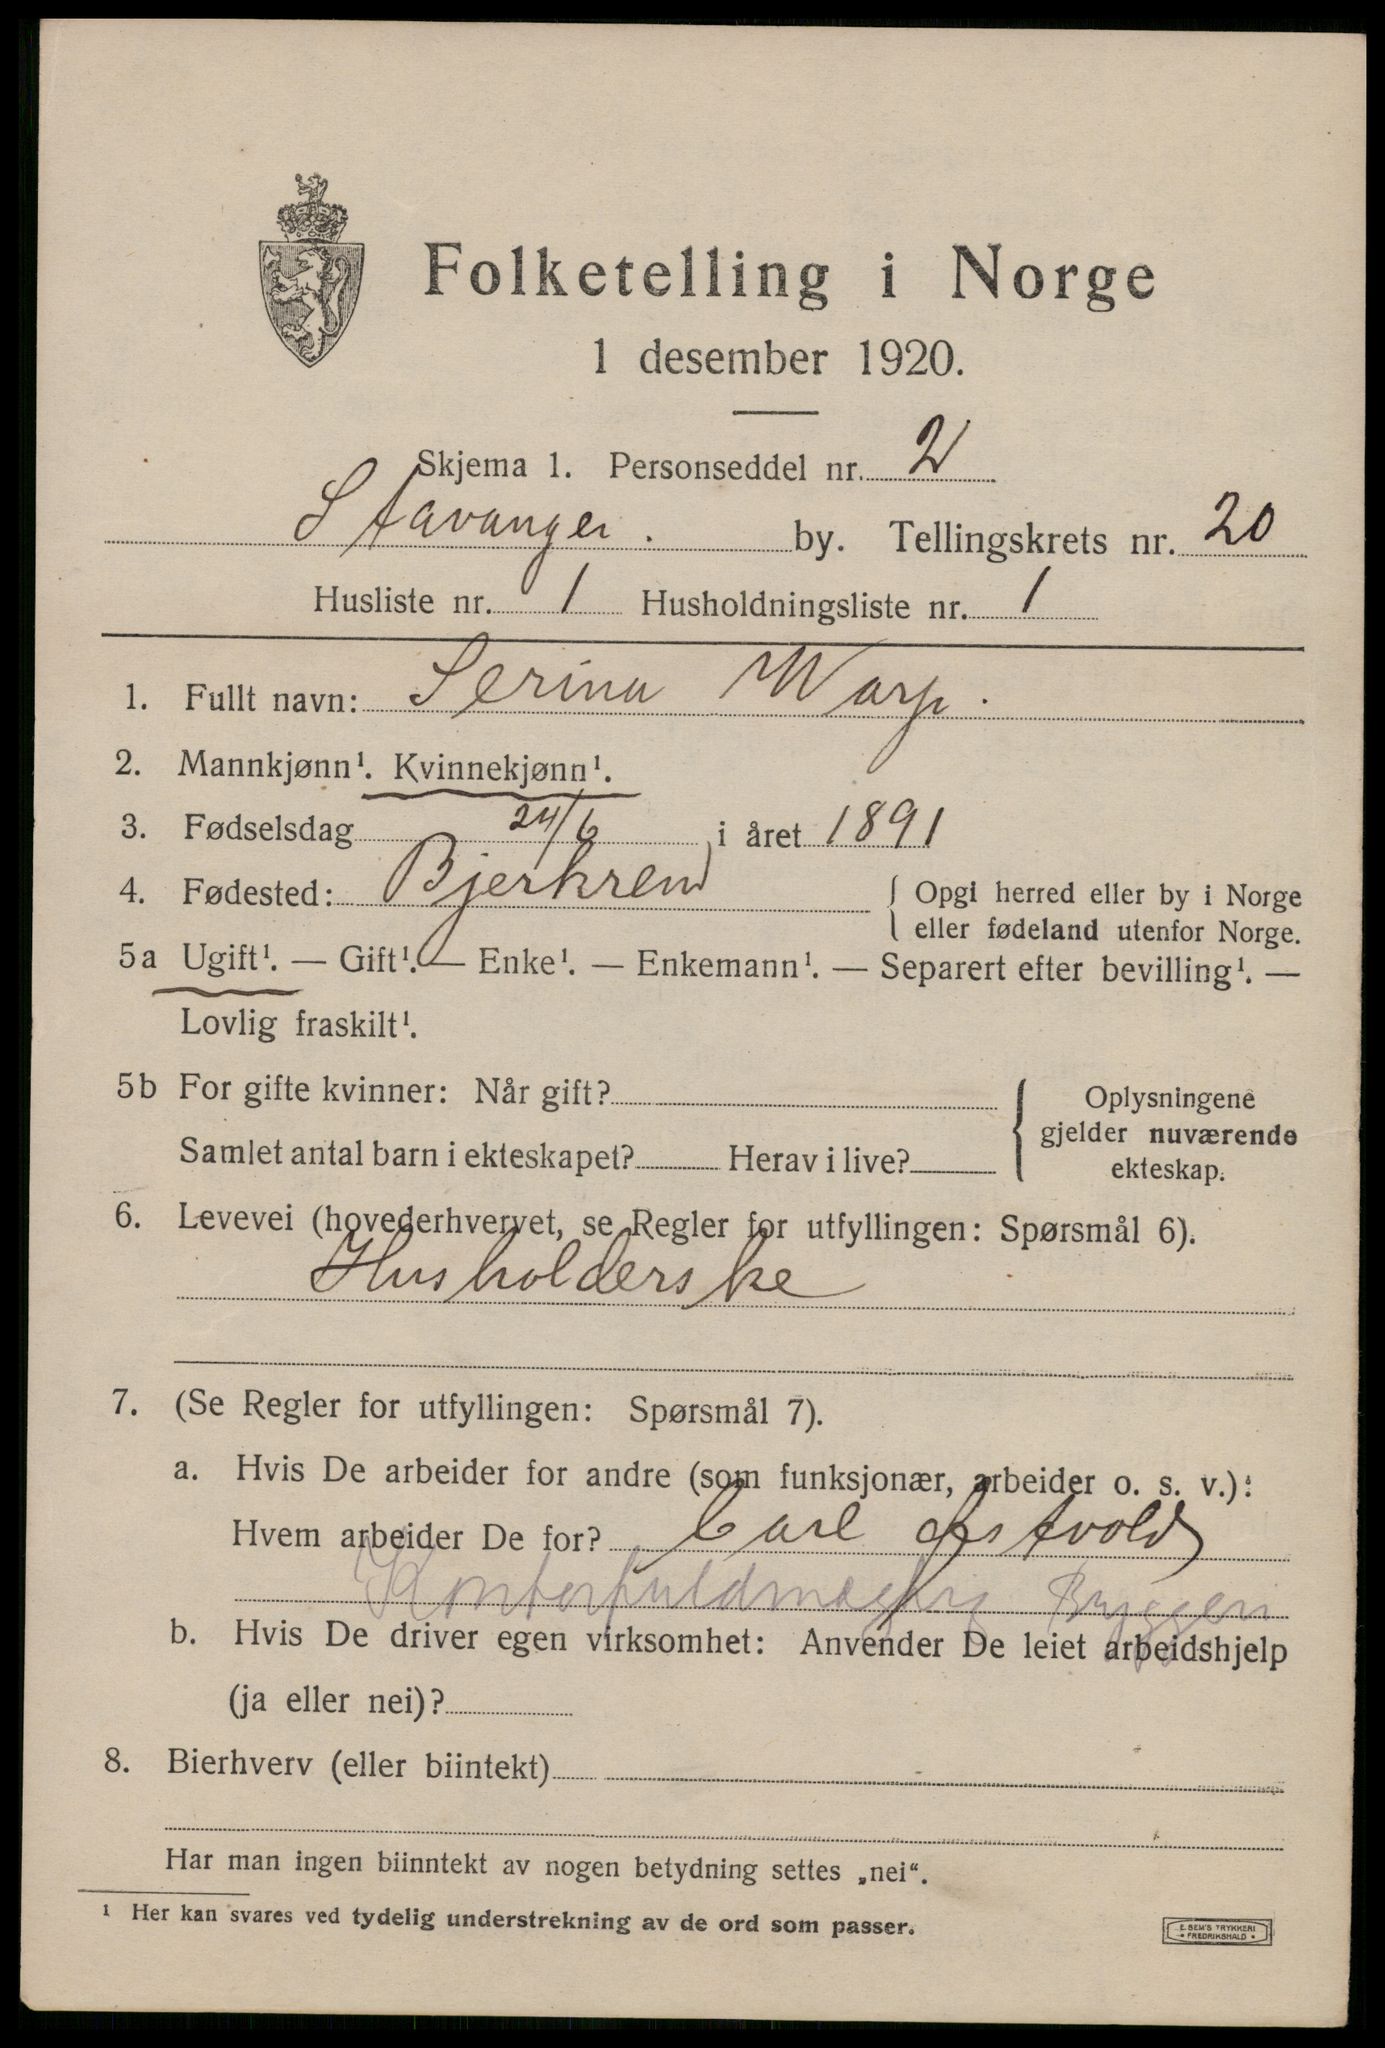 Folketelling i Norge
1 desember 1920.
Skjema 1. Personseddel nr. 2
Stavanger. by. Tellingskrets nr. 20
Husliste nr. 1 Husholdningsliste nr. 1
1. Fullt navn: Serina Warp.
2. Mannkjønn¹. Kvinnekjønn¹.
3. Fødselsdag 24/6 i året 1891
4. Fødested: Bjerkrem { Opgi herred eller by i Norge
eller fødeland utenfor Norge.
5a Ugift¹. — Gift¹. — Enke¹. — Enkemann¹. — Separert efter bevilling¹. —
Lovlig fraskilt¹.
5b For gifte kvinner: Når gift?
Samlet antal barn i ekteskapet? Herav i live?
{ Oplysningene
gjelder nuværende
ekteskap.
6. Levevei (hovederhvervet, se Regler for utfyllingen: Spørsmål 6).
Husholderske
7. (Se Regler for utfyllingen: Spørsmål 7).
a. Hvis De arbeider for andre (som funksjonær, arbeider o. s. v.):
Hvem arbeider De for? Carl
Kontorfuldmægtig
b. Hvis De driver egen virksomhet: Anvender De leiet arbeidshjelp
(ja eller nei)?
8. Bierhverv (eller biintekt)
Har man ingen biinntekt av nogen betydning settes „nei“.
¹ Her kan svares ved tydelig understrekning av de ord som passer.
E. SEM'S TRYKKERI
FREDRIKSHALD